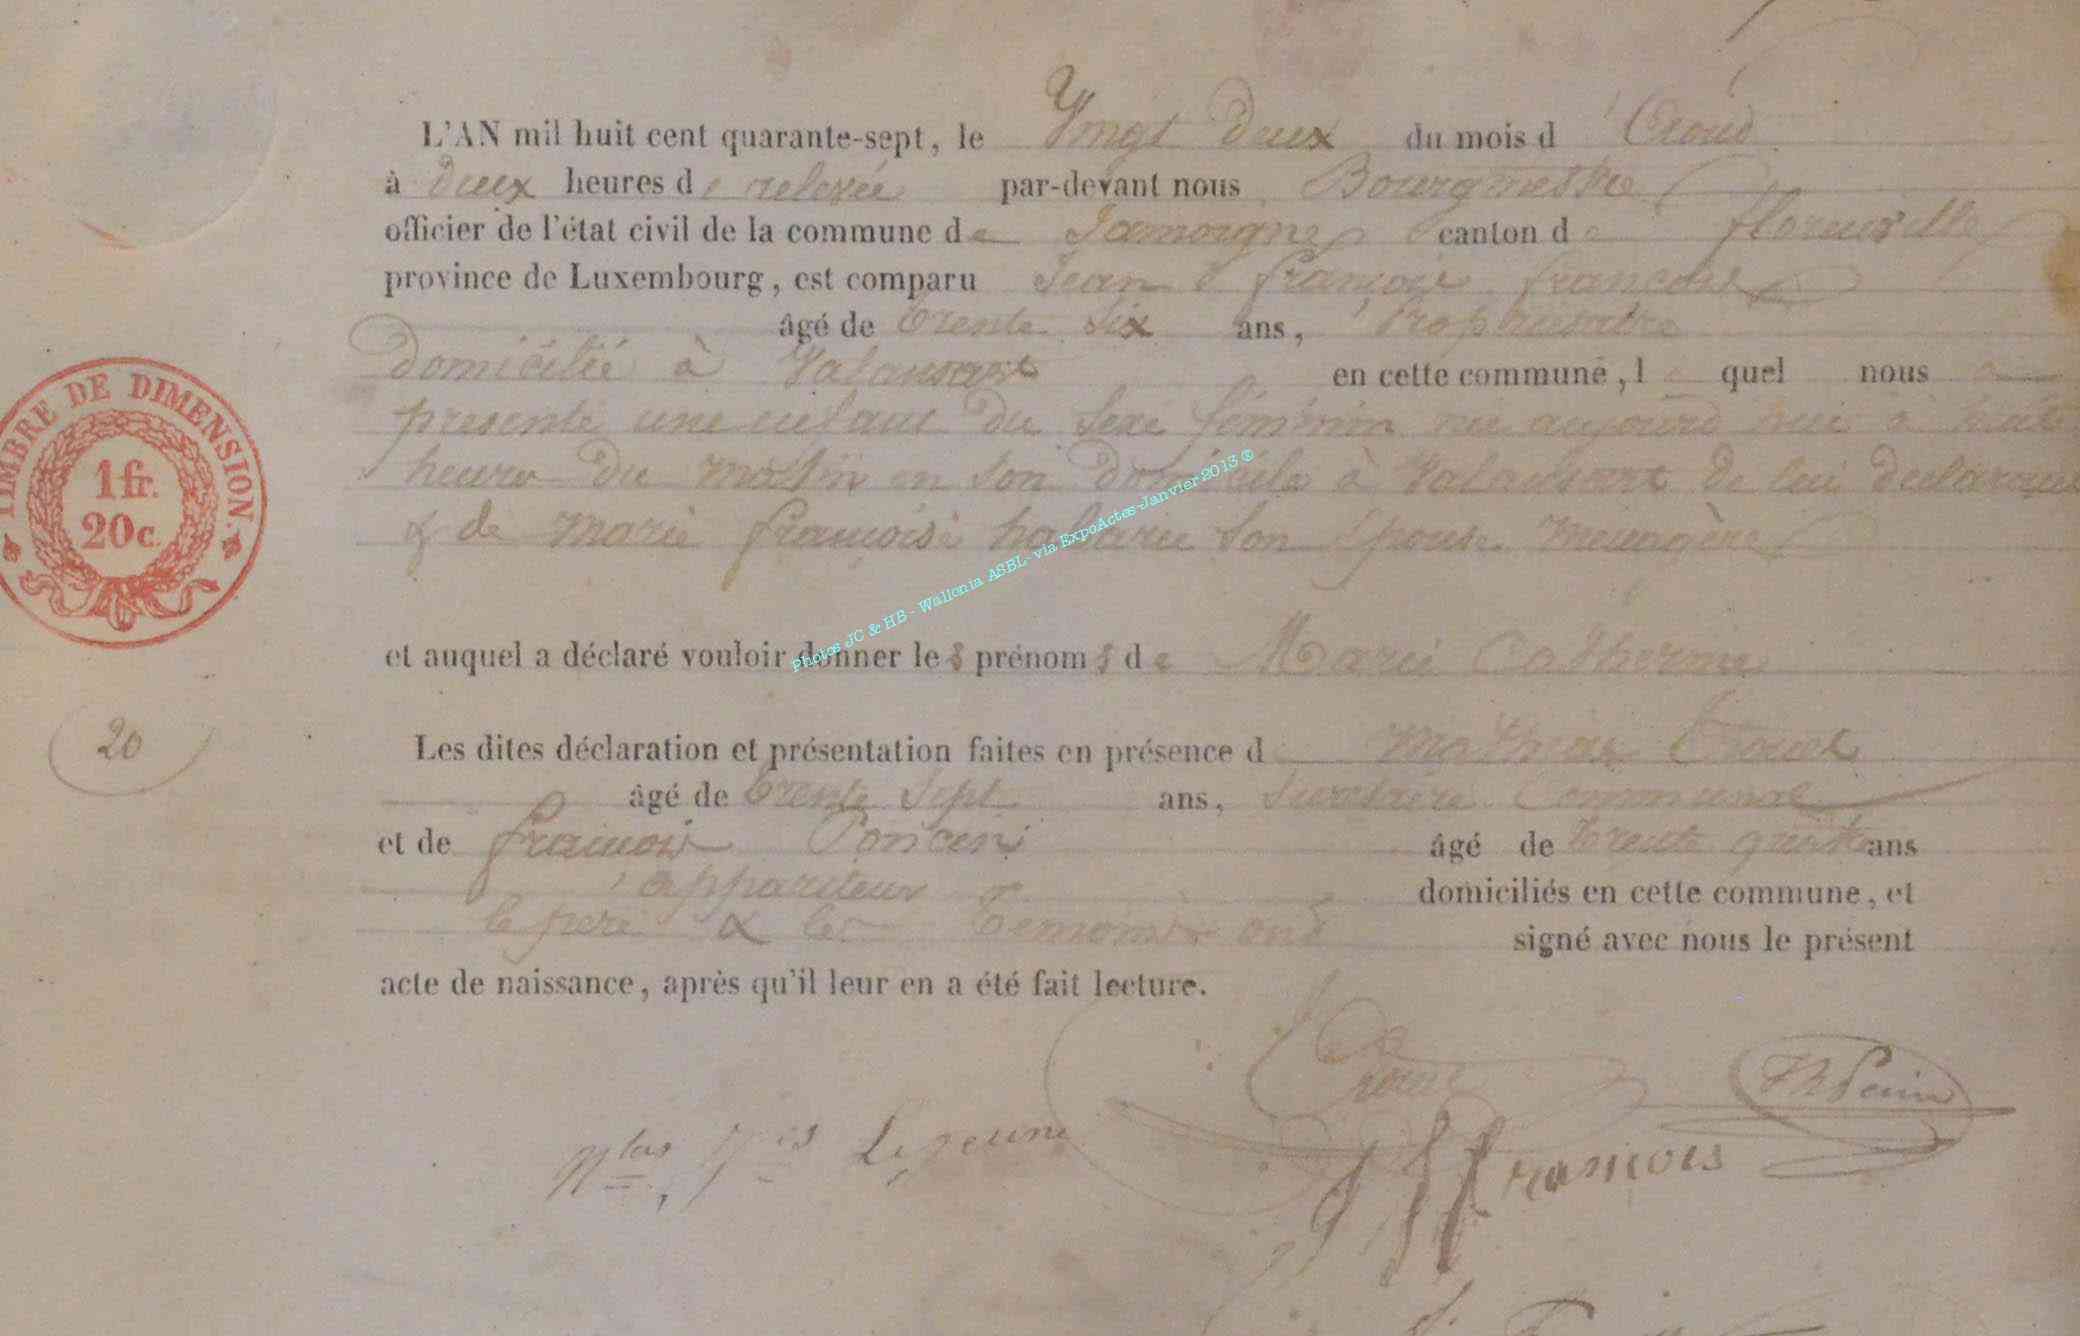 L'AN mil huit cent quarante-sept, le Vingt deux du mois d
à deux heures de relevée par-devant nous Bourgmestre
officier de l'état civil de la commune de Jamoigne canton de florenville
province de Luxembourg, est comparu Jean françois françois
âgé de trente six ans, Propriaitaire
domicilié à Valansart en cette commune, le quel nous a
presenté une enfant du sexe féminin née aujourd hui à huit
heure du matin en son domicile à Valansart de lui declarant
& de marie françoise son épouse menagère
et auquel a déclaré vouloir donner les prénoms de Marie Catherine
TIMBRE DE DIMENSION.
1 fr.
20 c.
20
Les dites déclaration et présentation faites en présence de Mathias
âgé de trente sept ans, Secretaire Communal
et de françois Poncin âgé de trente quatre ans
appariteur domiciliés en cette commune, et
le pere & les temoins ont signé avec nous le présent
acte de naissance, après qu'il leur en a été fait lecture.
Lejeune
françois
Photos JC & HB - Wallonia ASBL - via ExpoActes-Janvier 2013 ®